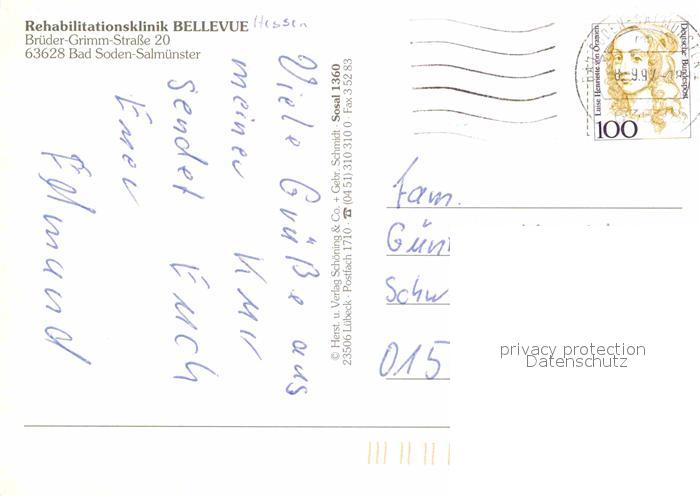 Rehabilitationsklinik BELLEVUE Hessen
Brüder-Grimm-Straße 20
63628 Bad Soden-Salmünster
Viele Grüße aus
meiner Kur
sendet Euch
Euer
© Herst. u. Verlag Schöning & Co. + Gebr. Schmidt · Sosal 1360
23506 Lübeck · Postfach 1710 · ☎ (04 51) 310 310 0 · Fax 3 52 83
Luise Henriette von Oranien
Deutsche Bundespost
100
Fam.
Gün
Schw
015
privacy protection
Datenschutz